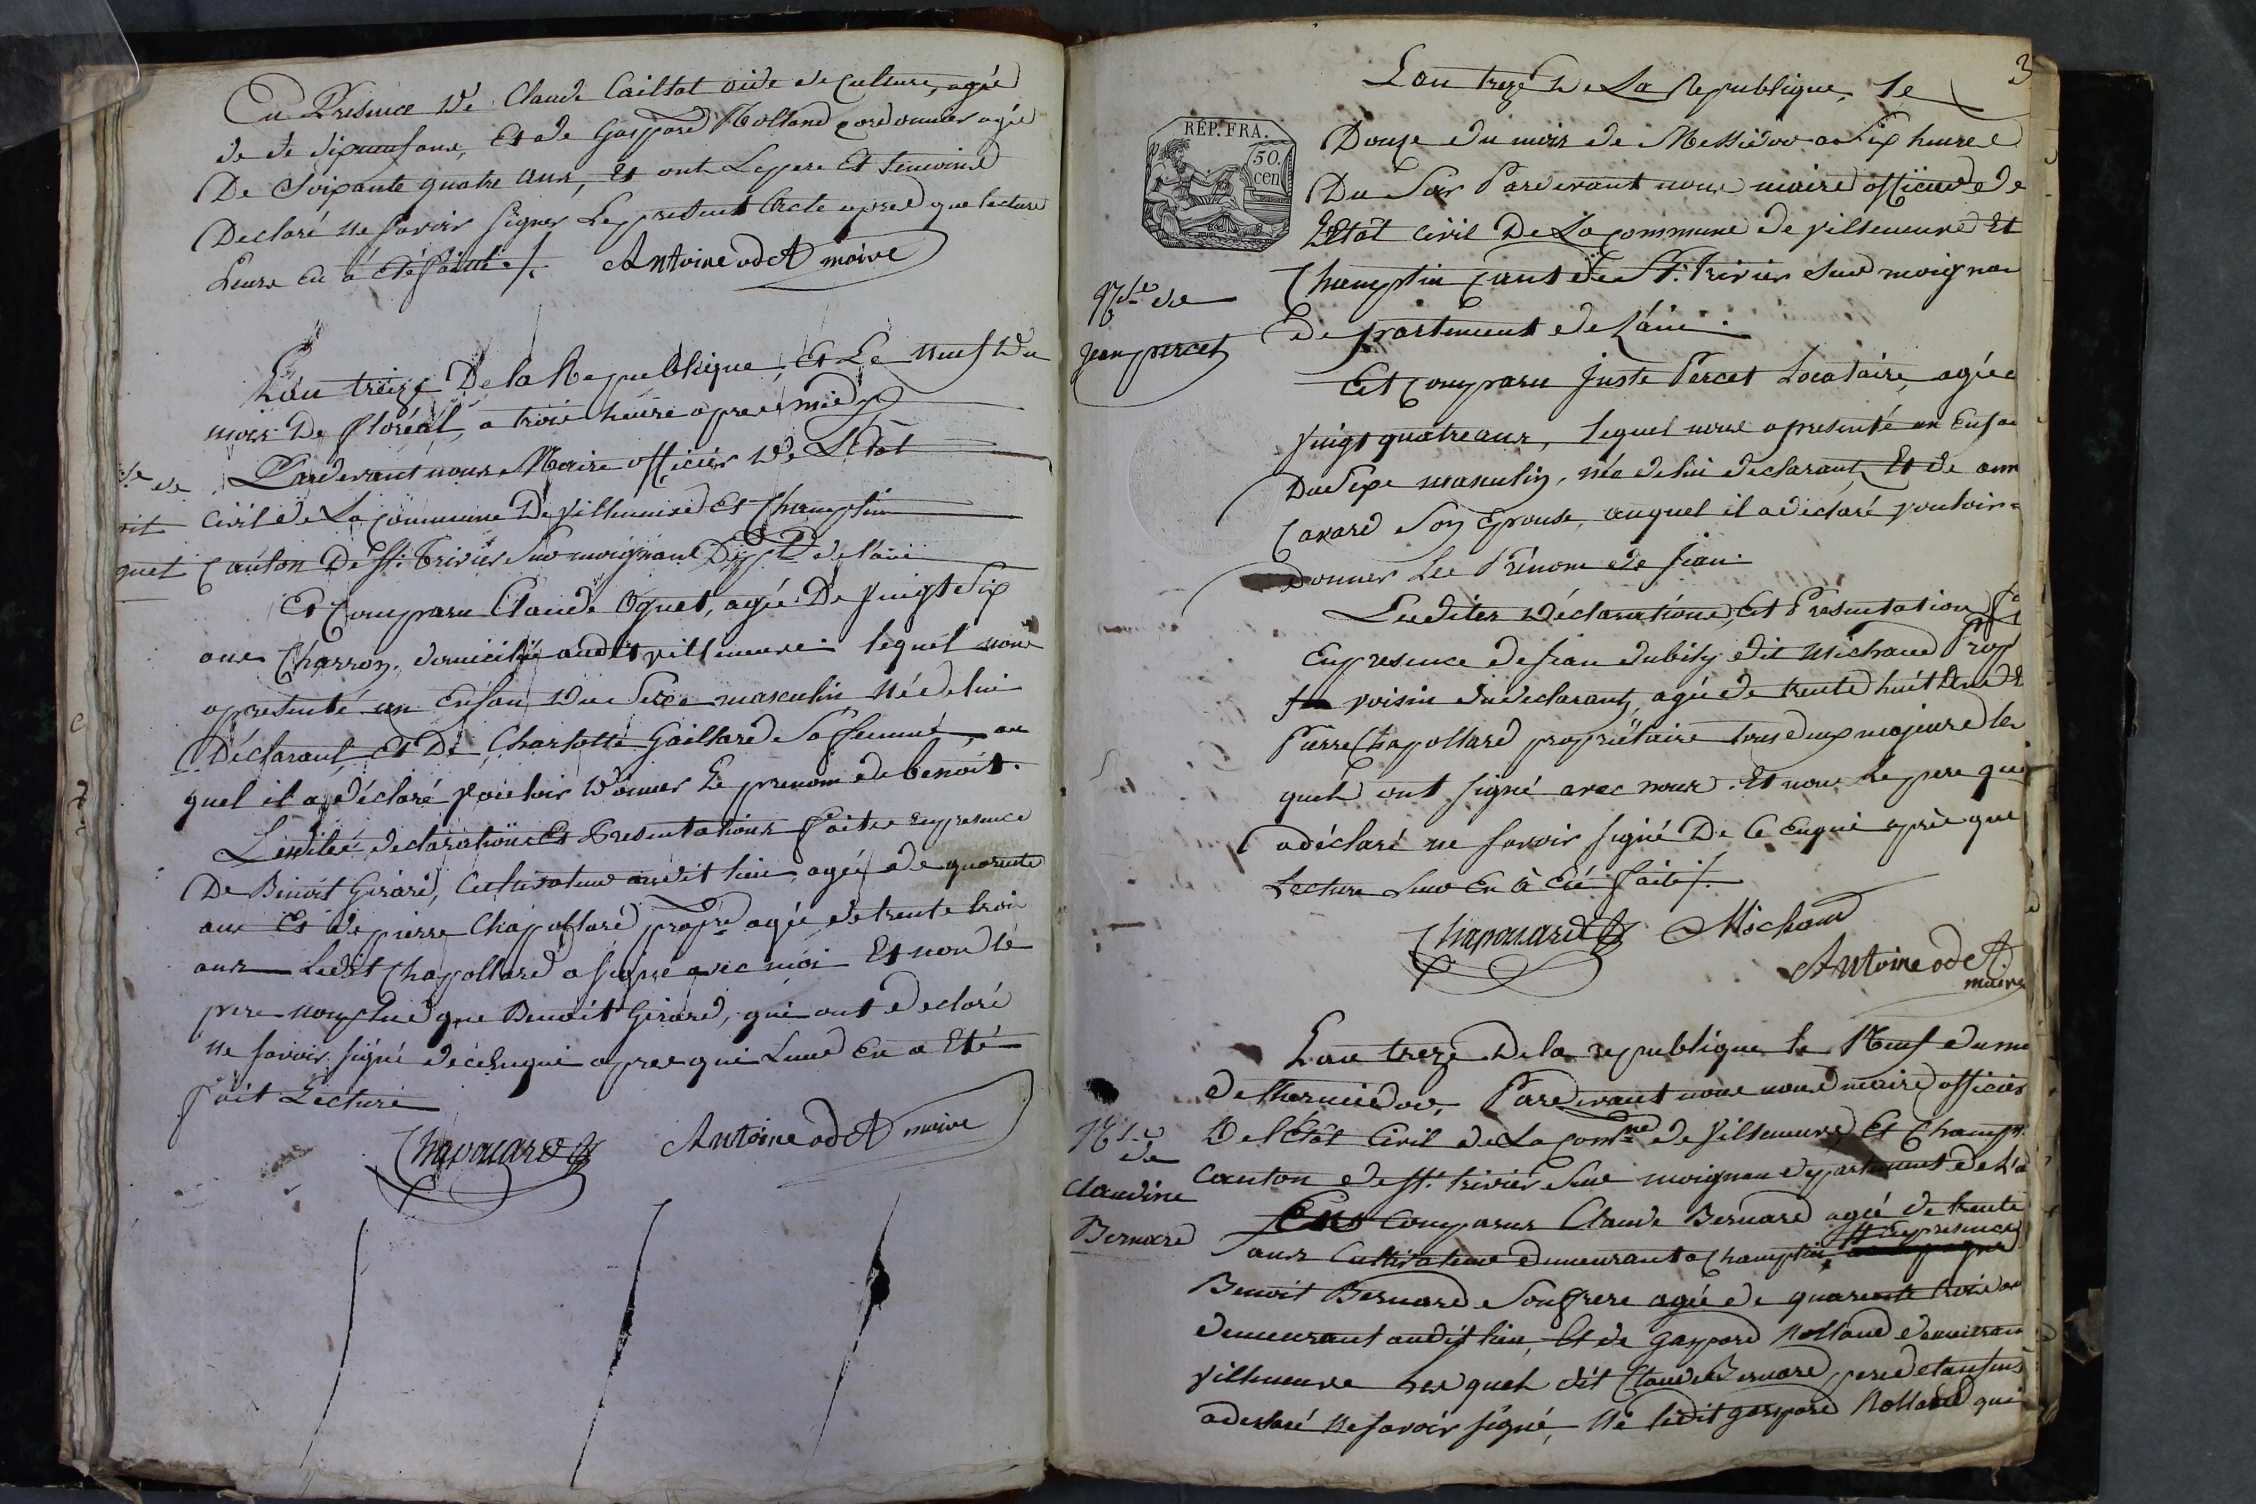 En Presence de Claude Caillat aide de Culture, agé
de de dixneuf ans, Et de Gaspard Rolland cordonnier agé
De Soixante quatre ans, Et ont Le pere Et temoins
Declaré ne savoir signer Le present Acte apres que lecture
Leurs en a été faitte ./. Antoine odet maire
L'an treize De la Republique, Et Le neuf du
mois De floréal, a trois heure apres midy
Pardevant nous Maire officier De L'Etat
civil de La commune De Villeneuve Et Champtin
Canton De St. Trivier Sur moignans Dept. de l'ain
Et Comparu Claude Oquet, agé De Vingt Six
ans Charron, domicilié audit villeneuve lequel nous
a presenté un Enfan du Sexe masculin Né de lui
Déclarant, Et De Charlotte Gaillard Sa femme, au
quel il a déclaré vouloir Donner Le prenom de benoit.
Lesditte declarations Et Presentations faitte en presence
De Benoit Girard, Cultivateur audit lieu, agé de quarente
ans Et de pierre Chapollard propre. agé de trente trois
ans Ledit Chapollard a signé avec moi Et non le
pere non plus que Benoit Girard, qui ont declaré
Ne savoir signé de ce Enquis apres que Leurs En a Eté
fait Lecture
Chapolard Antoine odet maire
de
oit
quet
3
L'an treze De La Republique, le
REP. FRA.
50.
cen
Douze du mois de Messidor a Six heures
Du Soir Pardevant nous maire officier de
L'Etat Civil De La commune de villeneuve Et
Champtin Cant. de St. Trivier Sur moignan
Departement de L'ain.
Nce. de
Jean percet
Est Comparu Juste Percet Locataire, agé
vingt quatre ans, lequel nous a presenté un Enfan
Du Sexe masculin, né de lui declarant, Et de ann
Cavard Son Epouse, auquel il a déclaré vouloir
donner Le Prénom de Jean.
Lesdites Déclarations, Et Presentation
En presence de Jean dubisy dit Michaud Prop
voisin du declarant, agé de trente huit ans
Pierre Chapollard propriétaire tous deux majeurs les
quels ont signé avec nous. Et non Le pere qui
a déclaré ne savoir signé De Ce Enquis après que
Lecture Leur En à Eté faite ./.
Chapolard Michaud
Antoine odet
maire
L'an treze De la republique le Neuf du m
de thermidor, Pardevant nous nous maire officier
De l'Etât Civil de La comne. de Villeneuve, Et Champ
canton de St. trivier Sur moignan departement de L'a
Nce.
de
Claudine
Bernard
Est Comparus Claude Bernard agé de trente
ans Cultivateur demeurant a Champtin,
En presence
Benoit Bernard Son frere agé de quarente trois an
demeurant audit lieu, Et de Gaspard Rolland demeuran
villeneuve Les quels dit Claude Bernard, pere de l'anfans
a declaré Ne savoir signé, Ne ledit gaspard Rolland qui